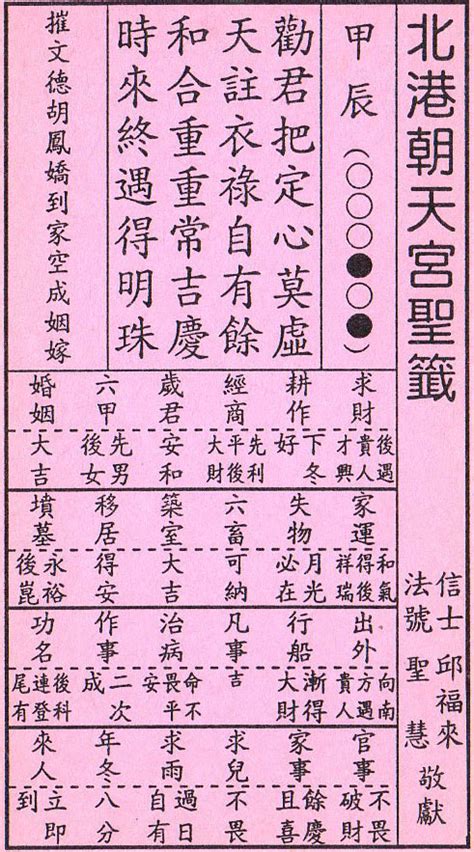 北港朝天宮聖籤
信士 邱福來
法號 聖慧 敬獻
甲辰(○○○●○●)
勸君把定心莫虛
天註衣祿自有餘
和合重重常吉慶
時來終遇得明珠
摧文德胡鳳嬌到家空成姻嫁
求財
後遇
貴人
才興
耕作
下冬
好
經商
先利
平後
大財
歲君
安和
六甲
先男
後女
婚姻
大吉
家運
和氣
得後
祥瑞
失物
月光
必在
六畜
可納
築室
大吉
移居
得安
墳墓
永裕
後崑
出外
向南
方遇
貴人
行船
漸得
大財
凡事
吉
治病
命不
畏平
安
作事
二次
成
功名
後科
連登
尾有
官事
不畏
破財
家事
餘慶
且喜
求兒
不畏
求雨
過日
自有
年冬
八分
來人
立即
到